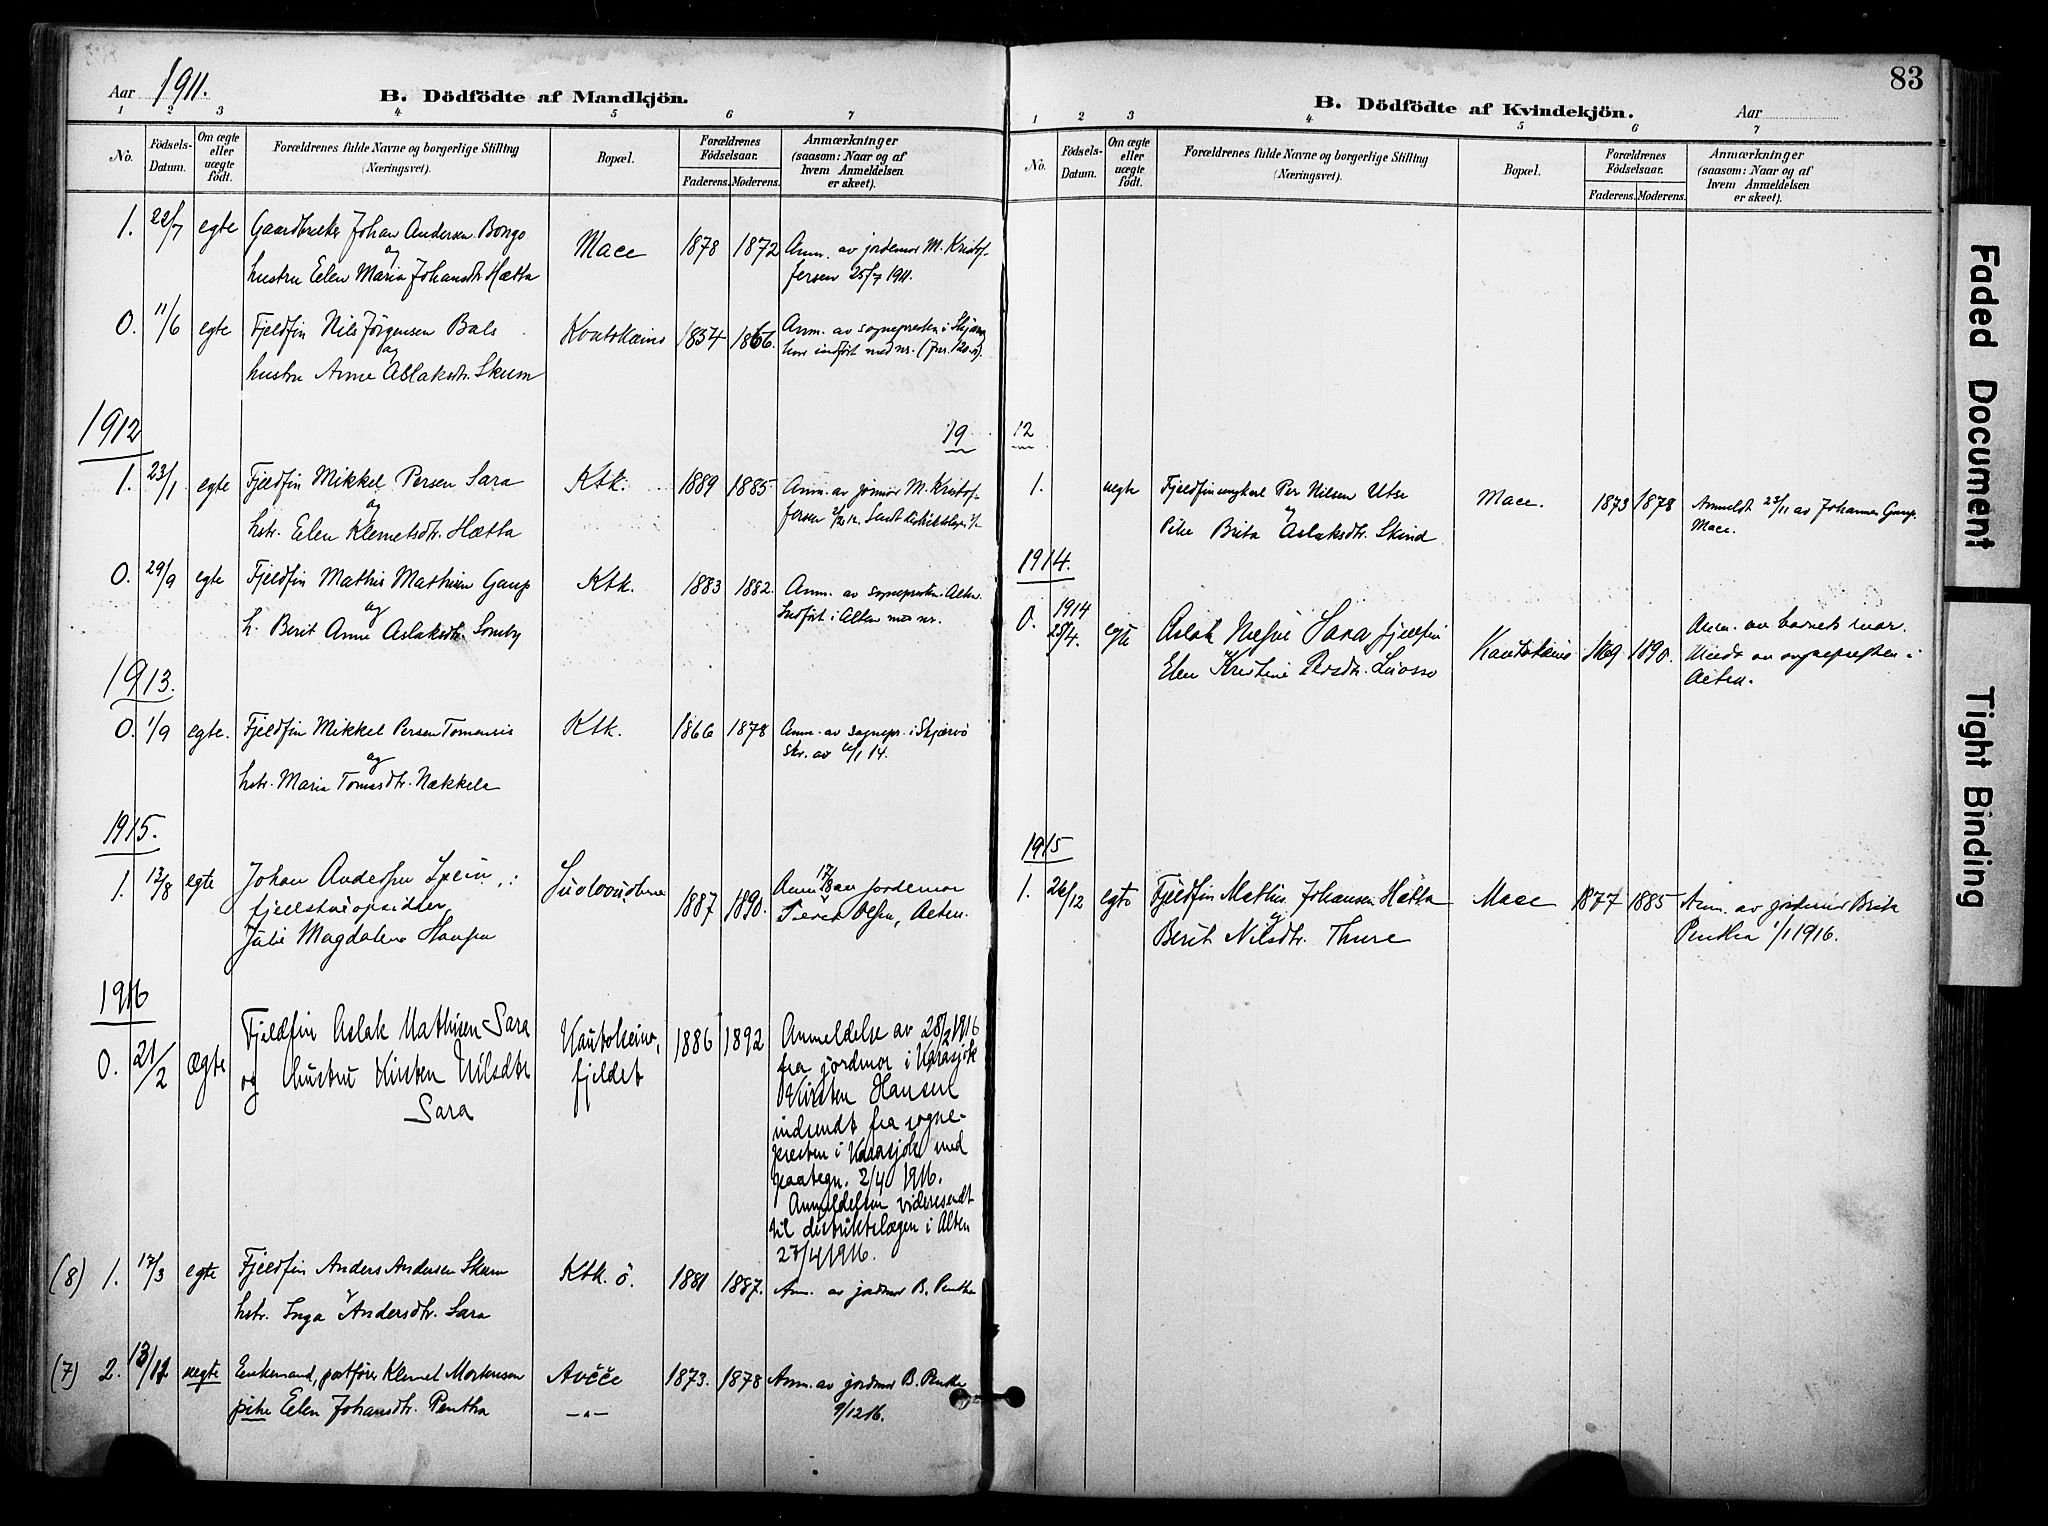 83
Aar 1911.
B. Dödfödte af Mandkjön.
1 2 3 4 5 6 7
No.
Födsels-Datum.
Om ægte eller uægte födt.
Forældrenes fulde Navne og borgerlige Stilling
(Næringsvei).
Bopæl.
Forældrenes Födselsaar.
Faderens. Moderens.
Anmærkninger
(saasom: Naar og af
hvem Anmeldelsen
er skeet).
1. 22/7 egte Gaardbruker Johan Andersen Bongo Mace 1878 1872 Anm. av jordemor M. Kristof-
og
hustru Elen Maria Johansdtr. Hætta fersen 25/7 1911.
0. 11/6 egte Fjeldfin Nils Jörgensen Bals Kautokeino 1866. Anm. av sogneprestn i
og
hustru Anne Aslaksdtr. Skum indfört med nr.
1912 19
1. 23/1 egte Fjeldfin Mikkel Persen Sara Ktk. 1889 1885 Anm. av jormor M. Kristof-
og
hstr. Elen Klemetsdtr. Hætta fersen
0. 29/9 egte Fjeldfin Mathis Mathisen Gaup Ktk. 1883 1882. Anm. av sogneprestn. Alten.
og
h. Berit Anne Aslaksdtr. Somby Indfört i Alten med nr.
1913.
0. 1/9 egte. Fjeldfin Mikkel Persen Tornensis Ktk. 1866 1878 Anm. av sognepr. i Skjærvö
og
hstr. Maria Tomasdtr. Nækkela skr. av 14.
1915.
1. 13/8 egte Johan Andersen 1887 1890. Anm. av Jordemor
Julie Magdalena Hansen Olsen, Alten.
1916
0. 21/2 Ægte Fjeldfin Aslak Mathisen Sara Kautokeino, 1886 1892 Anmeldelse av 28/2 1916
og hustru Kirsten Nilsdtr fjeldet fra jordmor i Karasjok
Sara Kirsten Hansen
indsendt fra sogne-
presten i Karasjok med
paategn. 2/4 1916.
Anmeldelsen videresendt
til distriktslægen i Alten
27/4 1916.
(8) 1. 17/3 egte Fjeldfin Anders Andersen Skum Ktk. ö. 1881 1887. Anm. av jordmor B. Pentha
hstr. Inga Andersdtr. Sara
(7) 2. uegte Enkemand, Klemet Mortensen Avčče 1873. 1878 Anm. av jordmor B. Pentha
pike Elen Johansdtr. Pentha -"- 9/12 16.
B. Dödfödte af Kvindekjön. Aar
1 2 3 4 5 6 7
No.
Födsels-Datum.
Om ægte eller uægte födt.
Forældrenes fulde Navne og borgerlige Stilling
(Næringsvei).
Bopæl.
Forældrenes Födselsaar.
Faderens. Moderens.
Anmærkninger
(saasom: Naar og af
hvem Anmeldelsen
er skeet).
12
1. uegte Fjeldfinungkarl Per Nilsen Utsi Mace. 1873 1878 Anmeldt 23/11 av Johannes Gaup.
og
Pike Brita Aslaksdtr. Skind Mace.
1914.
0. 1914 25/4. egte Aslak Sara fjellfin Kautokeino 1890. Anm. av barnets mor.
Elen Kristine Persdtr. av sognepresten i
Alten.
1915
1. 26/12 egte Fjeldfin Mathis Johansen Hætta Mace 1877 1885 Anm. av jordemor Brita
og
Berit Nilsdtr. Thure Pentha 1/1 1916.
Faded Document
Tight Binding